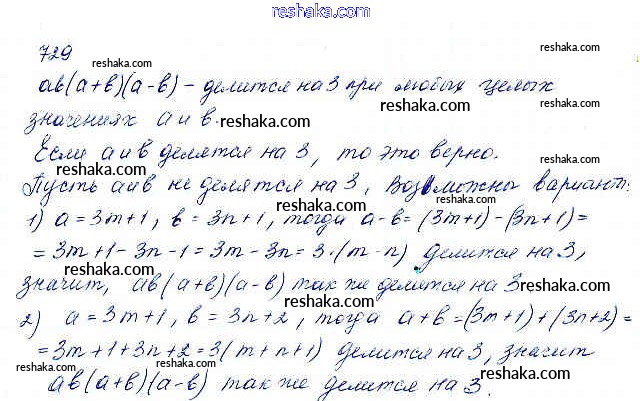 reshaka.com
729
reshaka.com reshaka.com
ab(a+b)(a-b) - делится на 3 при любых целых
reshaka.com reshaka.com
значениях a и b. reshaka.com
Если a и b делятся на 3, то это верно.
reshaka.com reshaka.com
Пусть a и b не делятся на 3, Возможны вариант:
reshaka.com
1) a = 3m+1, b = 3n+1, тогда a-b = (3m+1)-(3n+1)=
reshaka.com
= 3m+1-3n-1 = 3m-3n = 3·(m-n) делится на 3,
reshaka.com reshaka.com
значит, ab(a+b)(a-b) так же делится на 3 reshaka.com
reshaka.com
2) a = 3m+1, b = 3n+2, тогда a+b = (3m+1)+(3n+2)=
reshaka.com
= 3m+1+3n+2 = 3(m+n+1) делится на 3, значит
reshaka.com reshaka.com
ab(a+b)(a-b) так же делится на 3. reshaka.com
reshaka.com